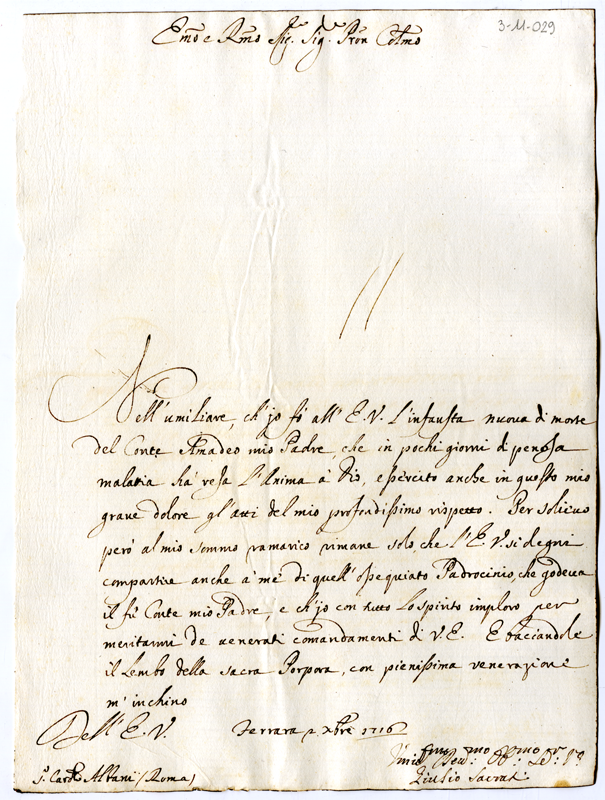 3-11-029
Emo e Rmo Sig. Sig. Pron Colmo
Nell'umiliare, ch'jo fò all'E.V. l'infausta nuova di morte
del Conte Amadeo mio Padre, che in pochi giorni di penosa
malattia hà resa l'Anima à Dio, esèrcito anche in questo mio
graue dolore gl'atti del mio profondissimo rispetto. Per solieuo
però al mio sommo ramarico rimane solo, che l'E.V. si degni
compartire anche à mè di quell'ossequiato Padrocinio, che godeua
il fù Conte mio Padre, e ch'jo con tutto lo spirito imploro per
meritarmi de uenerati comandamenti di V.E. E baciandole
il lembo della sacra Porpora, con pienissima venerazione
m'inchino
Dell'E.V. Ferrara 2 Xbre 1716
Giulio Sacrati
Sr. Card. Albani (Roma)